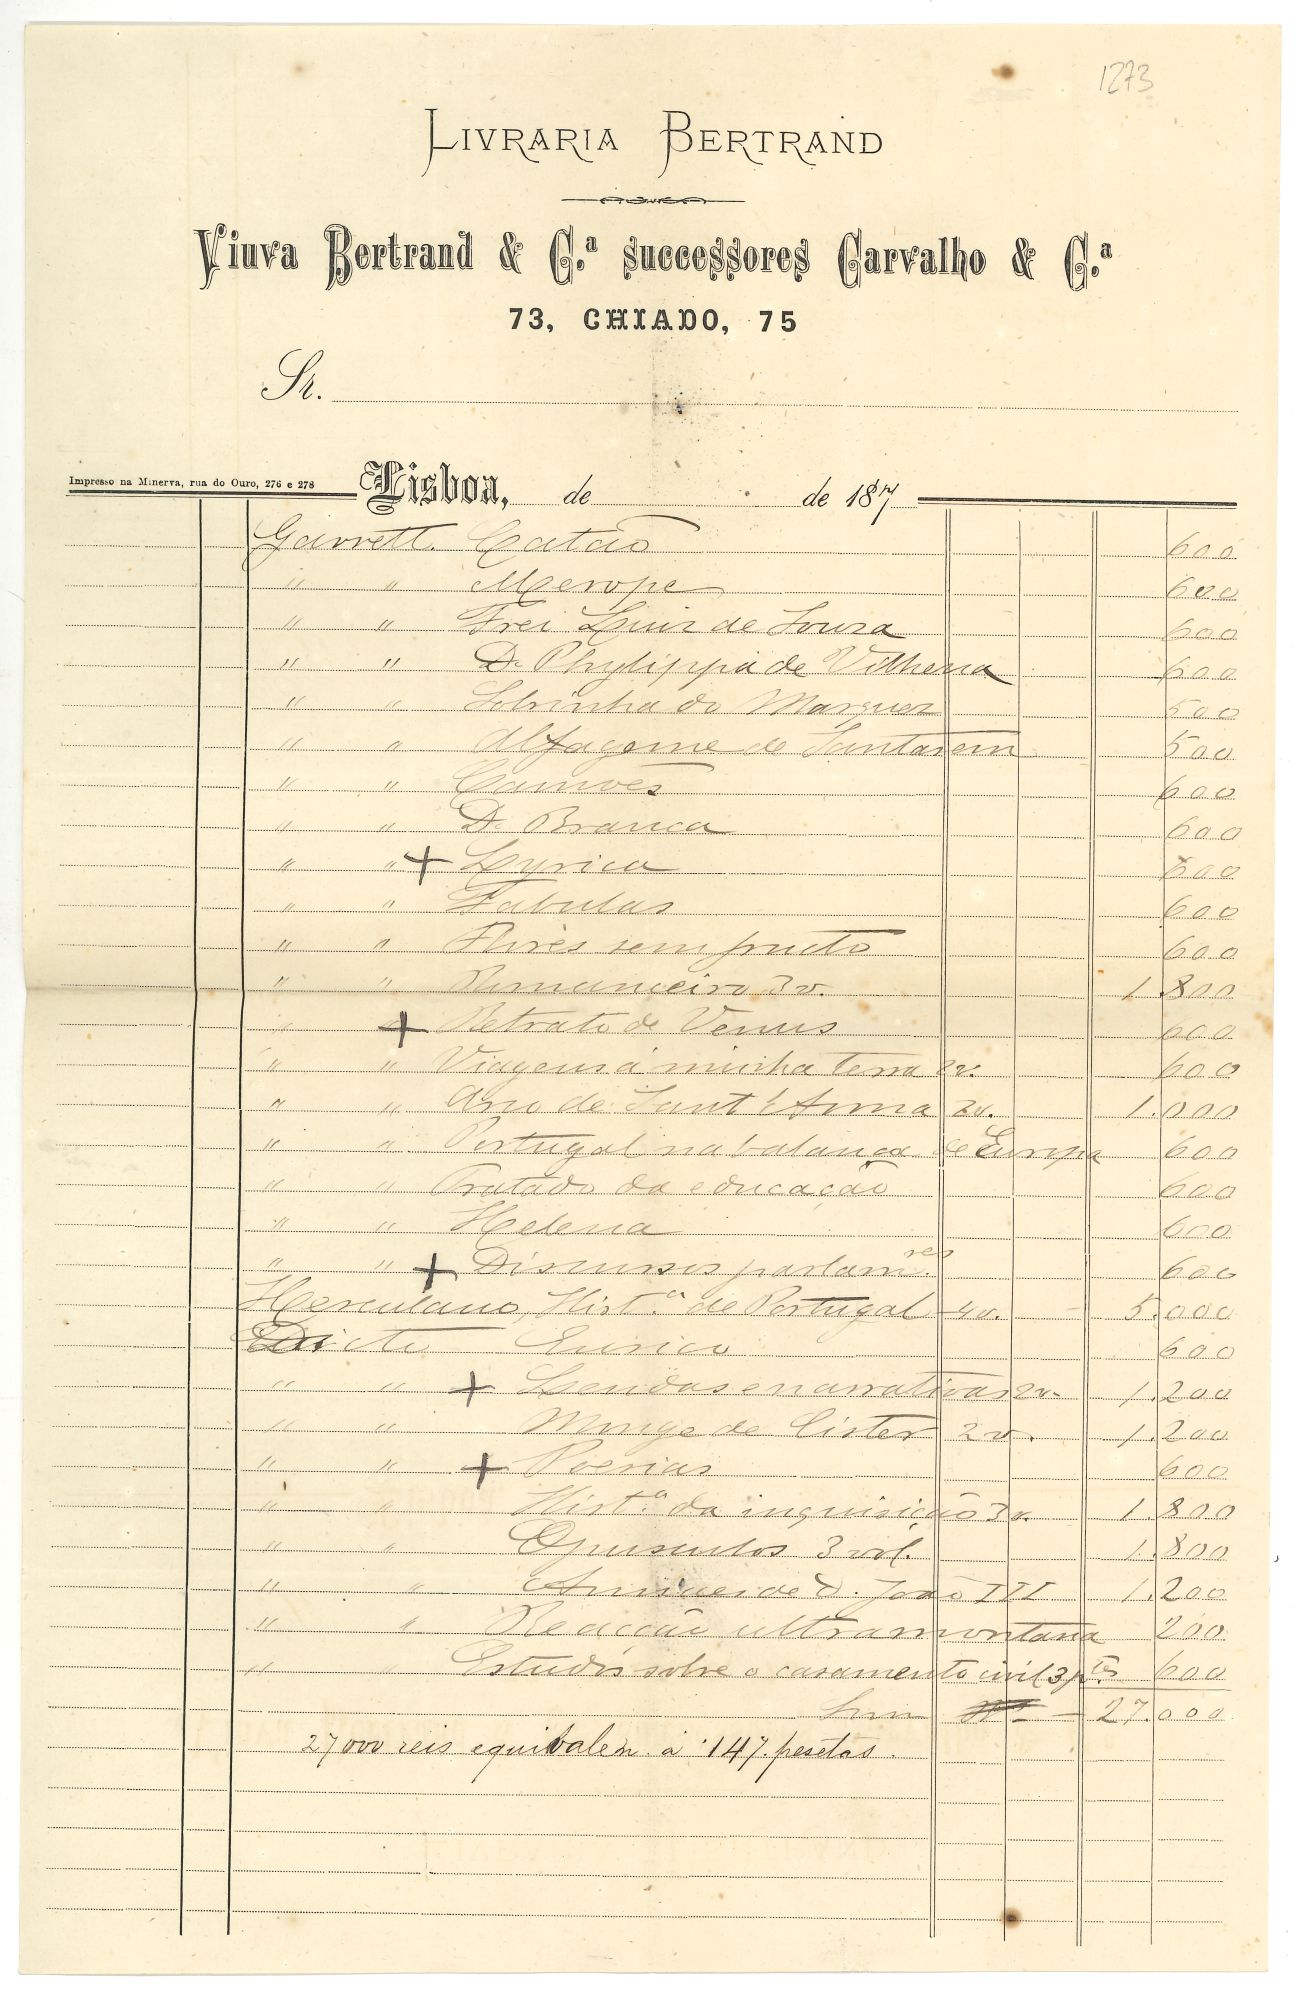 1273
LIVRARIA BERTRAND
Viuva Bertrand & C.ª successores Carvalho & C.ª
73, CHIADO, 75
Sr.
Impresso na Minerva, rua do Ouro, 276 e 278
Lisboa, de de 187
Garrett. Catão 600
" " Merope 600
" " Frei Luiz de Souza 600
" " D. Phylippa de Vilhena 600
" " Sobrinha do Marquez 500
" " Alfageme de Santarem 500
" " Camões 600
" " D. Branca 600
" " + Lyrica 600
" " Fabulas 600
" " Flores sem fructo 600
" " Romanceiro 3 v. 1.800
" + Retrato de Venus 600
" " Viagens á minha terra 2 v. 600
" " Arco de Sant'Anna 2 v. 1.000
" " Portugal na balança de Europa 600
" " Tratado da educação 600
" " Helena 600
" " + Discursos parlam.res 600
Herculano, Hist.ª de Portugal 4 v. - 5.000
Dicto Eurico 600
" " + Lendas e narrativas 2 v. 1.200
" " Monge de Cister 2 v. 1.200
" " + Poesias 600
" " Hist.ª da inquisição 3 v. 1.800
" " Opusculos 3 vol. 1.800
" " Annaes de D. João III 1.200
" " Reacção ultramontana 200
" " Estudos sobre o casamento civil 3 p.tes 600
Som - 27.000
27000 reis equibalen a 147 pesetas.